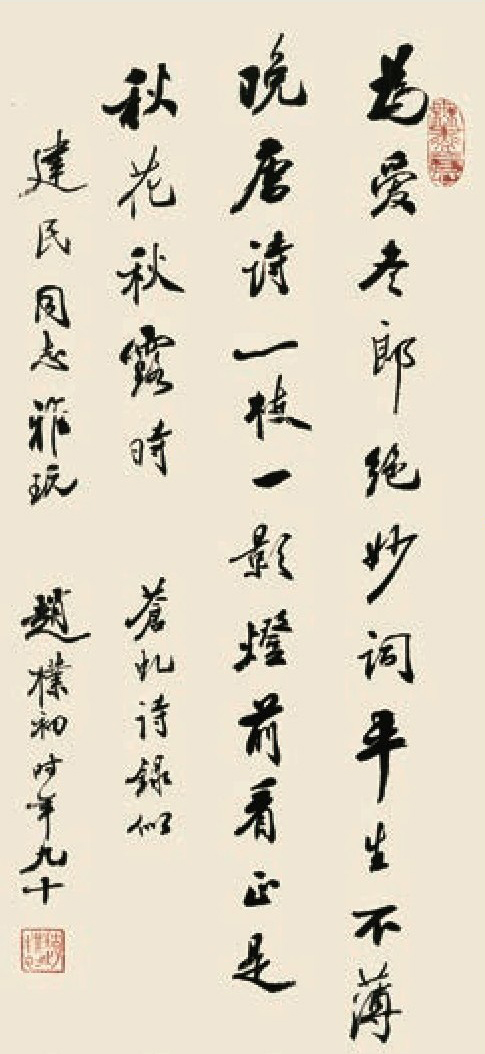 為愛冬郎絕妙詞平生不薄
晚唐詩一枝一影燈前看正是
秋花秋露時 蒼虬詩錄似
建民同志雅玩 趙樸初時年九十